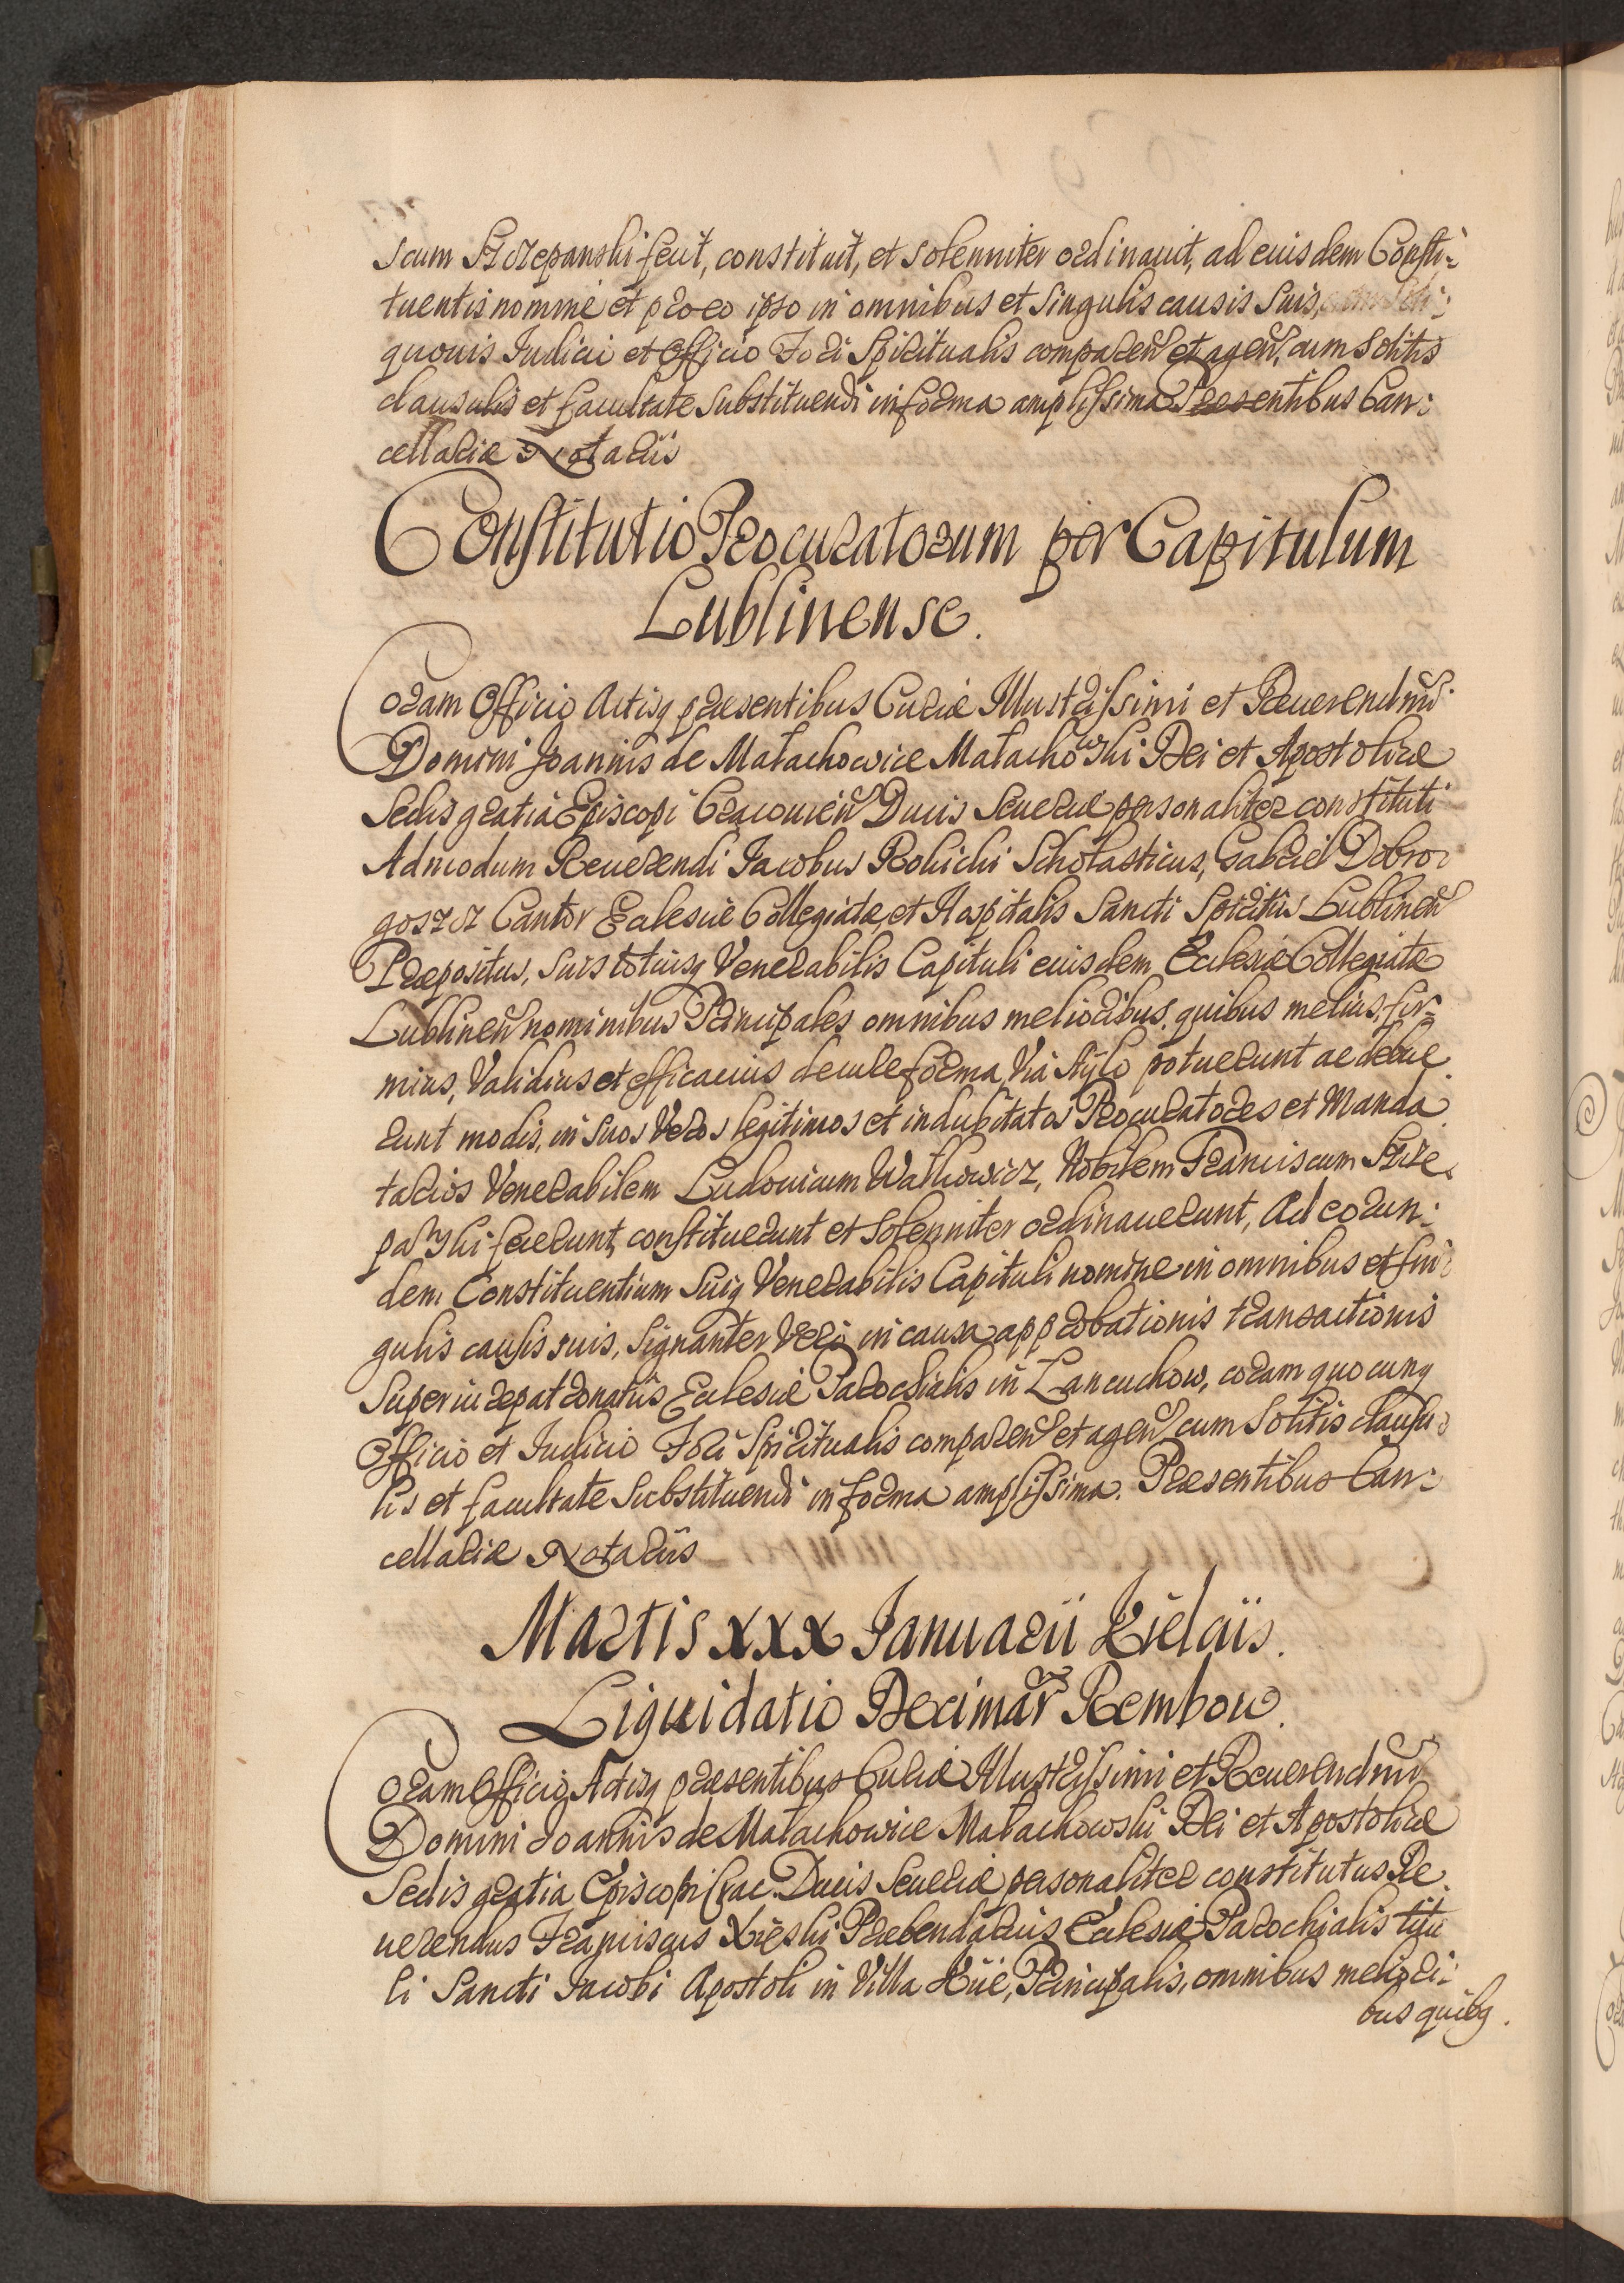 scum Szczepanski fecit, constituit, et solenniter ordinauit, ad eiusdem Consti:
tuentis nomine et pro eo ipso in omnibus et singulis causis suis,
quouis Iudicio et Officio Fori Spiritualis comparen̄ et agen̄, cum solitis
clausulis et facultate substituendi in forma amplissima Præsentibus Can:
cellariæ Notariis
Constitutio Procuratorum per Capitulum
Lublinense.
Coram Officio Actisq præsentibus Curiæ Illustrissimi et Reuerendm̄i
Domini Joannis de Małachowice Małachowski Dei et Apostolicæ
Sedis gratia Episcopi Cracouien̄ Ducis Seueriæ personaliter constituti
Admodum Reuerendi Iacobus Rolicki Scholasticus, Gabriel Dobro:
goszcz Cantor Ecclesiæ Collegiatæ, et Hospitalis Sancti Spiritus Lublinen̄
Præpositus, suis totiusq Venerabilis Capituli eiusdem Ecclesiæ Collegiatæ
Lublinen̄ nominibus Principales omnibus melioribus, quibus melius, fir:
mius, validius et efficacius de iure forma, via stylo potuerunt ac debue
runt modis, in suos veros legitimos et indubitatos Procuratores et Manda
tarios Venerabilem Ludouicum Walkowicz, Nobilem Franciscum Szcze
pański fecerunt, constituerunt et solenniter ordinauerunt, Ad eorun:
dem Constituentium suiq Venerabilis Capituli nomine in omnibus et sin
gulis causis suis, signanter vero in causa approbationis transactionis
super iurepatronatus Ecclesiæ Parochialis in Łancuchow, coram quocunq
Officio et Iudicio Fori Spiritualis comparen̄ et agen̄ cum solitis clausu
lis et facultate substituendi in forma amplissima. Præsentibus Can:
cellariæ Notariis
Martis XXX Ianuarii Kielciis.
Liquidatio Decimar̄ Rembow.
Coram Officio Actisq præsentibus Curiæ Illustrissimi et Reuerendm̄i
Domini Joannis de Małachowice Małachowski Dei et Apostolicæ
Sedis gratia Episcopi Crac. Ducis Seueriæ personaliter constitutus Re
uerendus Franciscus Præbendarius Ecclesiæ Parochialis titu
li Sancti Iacobi Apostoli in Villa Kiie, Principalis, omnibus meliori:
bus quibq.